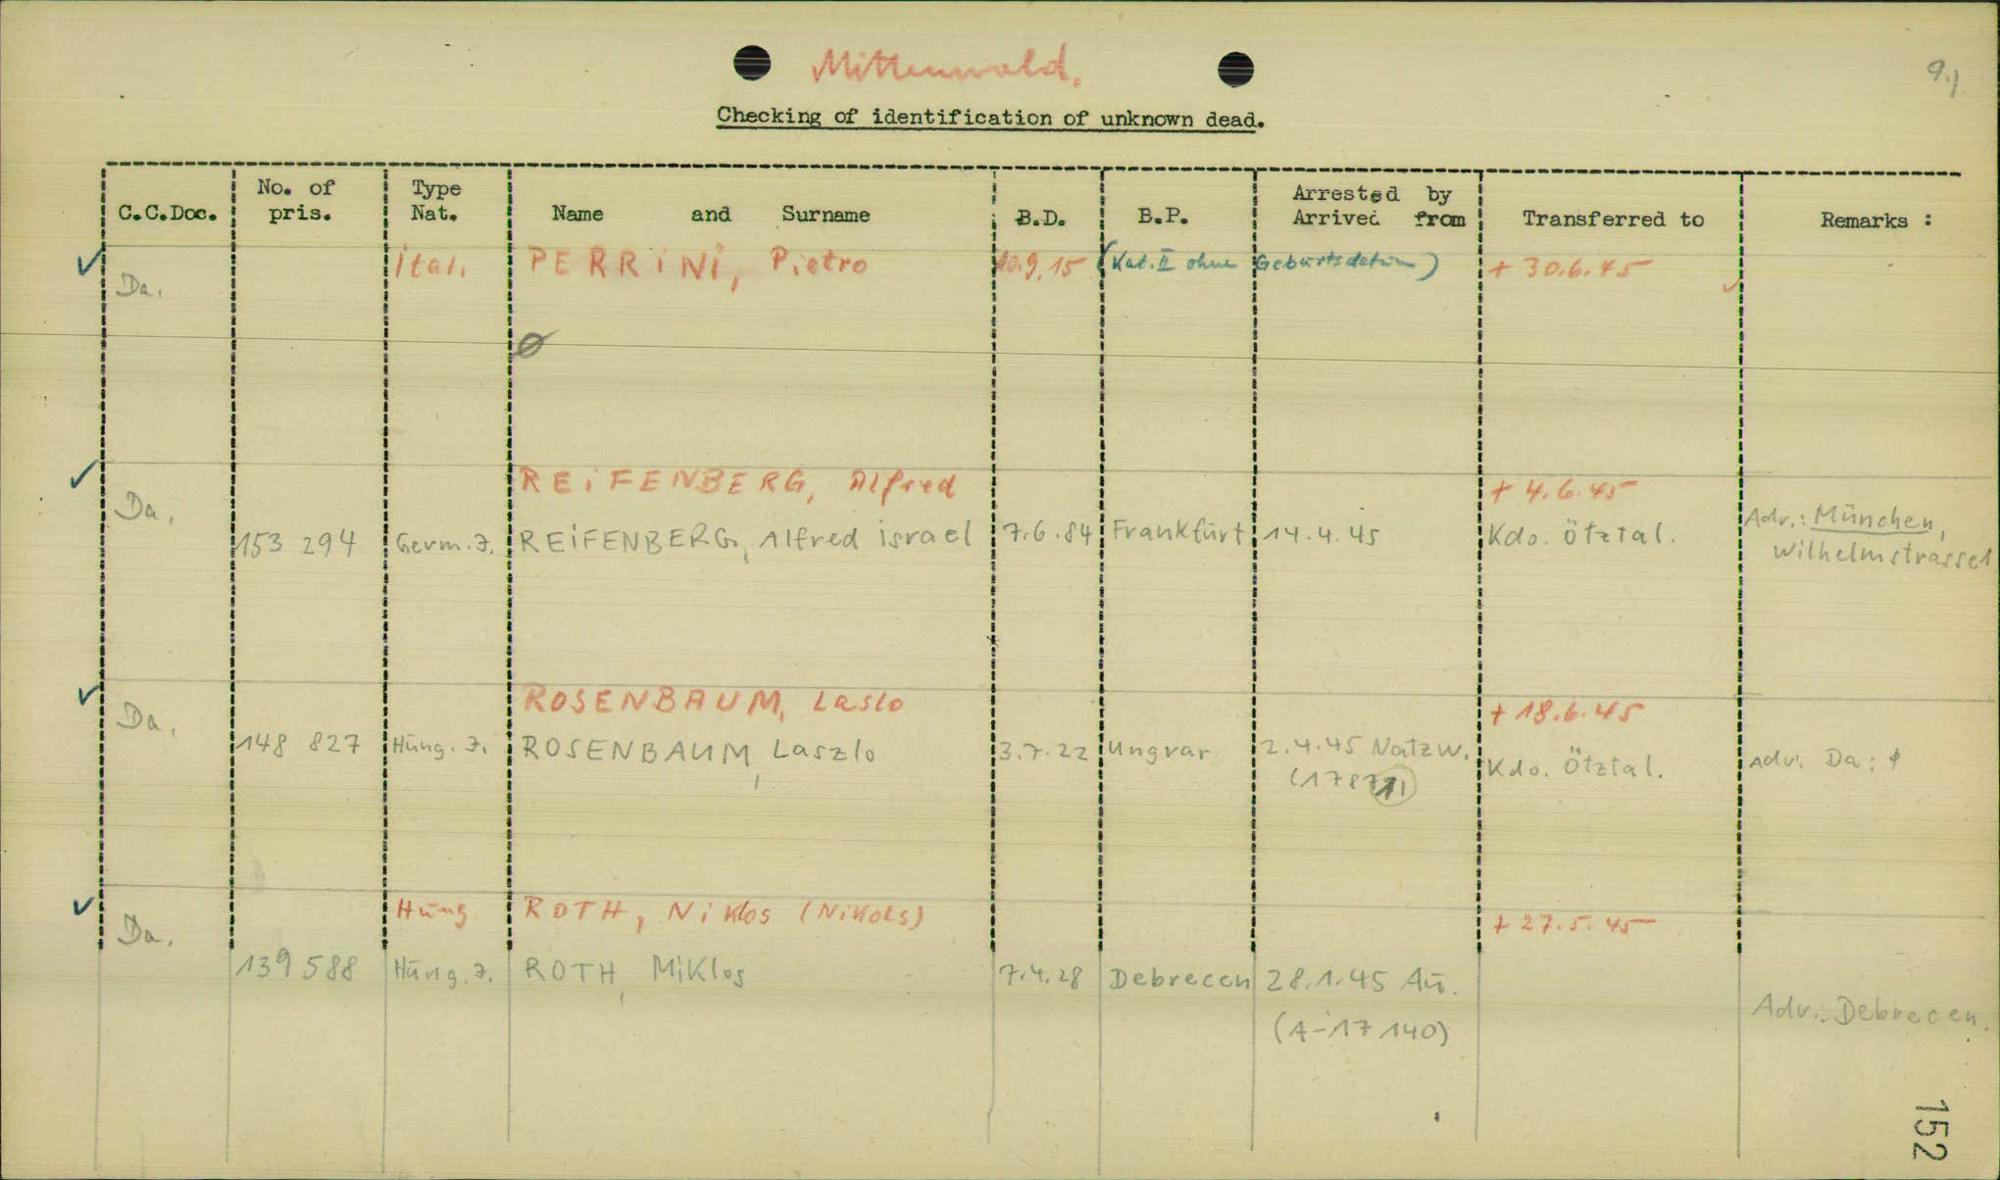 Mittenwald.
9.)
Checking of identification of unknown dead.
C.C.Doc. No. of pris. Type Nat. Name and Surname B.D. B.P. Arrested by Arrived from Transferred to Remarks :
Da. ital. PERRiNi, Pietro 10.9.15 (Kat. II ohne Geburtsdatum) + 30.6.45
Ø
REiFENBERG, Alfred + 4.6.45
Da. 153 294 Germ. J. REiFENBERG, Alfred israel 7.6.84 Frankfurt 14.4.45 Kdo. Ötztal. Adr.: München,
Wilhelmstrasse 1
ROSENBAUM, Laslo + 18.6.45
Da. 148 827 Hung. J. ROSENBAUM, Laszlo 3.7.22 Ungvar 2.4.45 Natzw. Kdo. Ötztal. Adr. Da:
Hung ROTH, Niklos (Nikols) + 27.5.45
Da. 139588 Hung. J. ROTH, Miklos 7.4.28 Debrecen 28.1.45 Au.
(A-17140) Adr.: Debrecen.
152